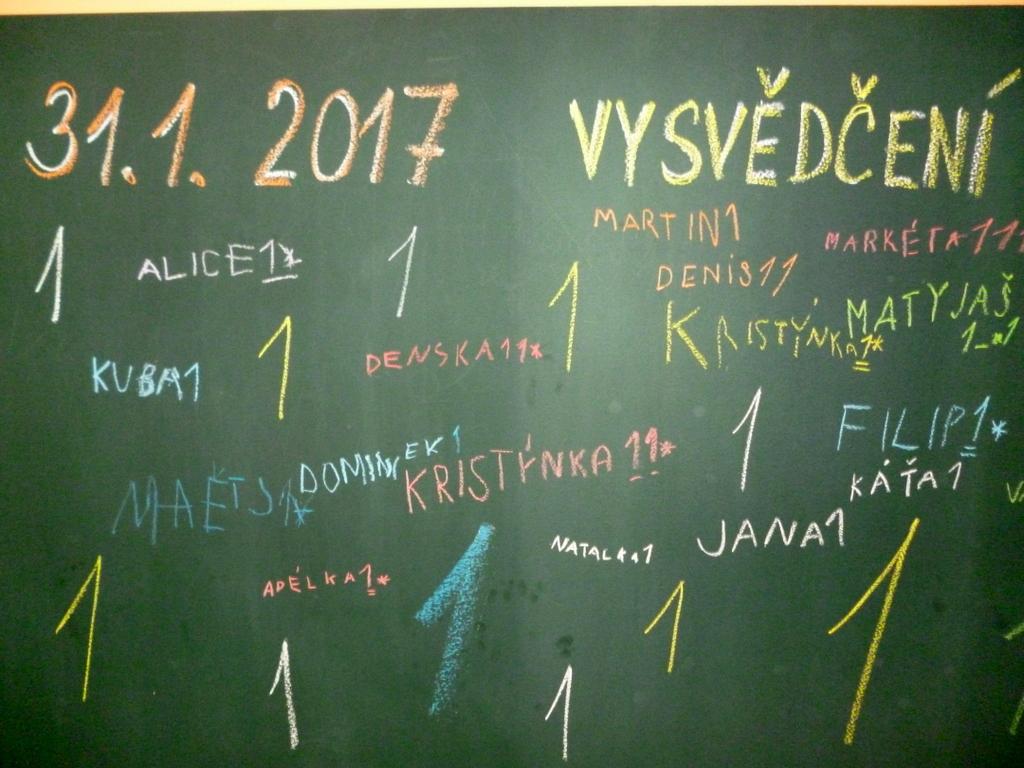 31.1. 2017
VYSVĚDČENÍ
MARTIN1
MARKÉTA111
1
ALICE1*
1
DENIS11
1
MATYJAŠ
1_*1
KRISTÝNKA1*
1
DENSKA11*
KUBA1
1
FILIP1*
DOMINIEK1
KRISTÝNKA11*
KÁŤA1
MAĚTJ1*
JANA1
NATALKA1
1
1
ADÉLKA1*
1
1
1
1